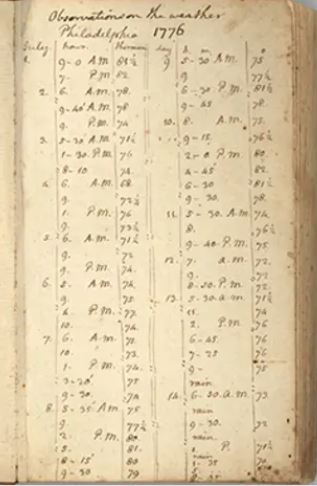 Observations on the weather
Philadelphia 1776
July. hour. thermom.
1. 9-0 A.M. 81½
7. P.M. 82.
2. 6. A.M. 78.
9-40' A.M. 78
9. P.M. 74
3. 5-30' A.M. 71½
1-30. P.M. 76
8-10. 74.
4. 6. A.M. 68.
9. 72¼
1. P.M. 76
9. 73½
5. 6. A.M. 71½
9. 72
9. P.M. 74.
6. 5. A.M. 74.
9. 75
4. P.M. 77.
10. 74.
7. 6. A.M.
10. 73.
1. P.M. 74
3-20' 75
9-30. 74
8. 5-35' A.M. 75.
9. 77½
2. P.M. 80
5. 81.
8-15' 80
9-30 79
day h. m. o
9 5-30 A.M. 75
9. 77½
6-30 P.M. 81½
9-45 78.
10. 8. A.M. 75.
9-15. 76½
2-0 P.M. 80.
4-45 82.
6-30 81½
9-30. 78.
11. 5-30. A.M. 74.
8. 76½
9-40. P.M. 75
12. 7. a.m. 72.
9. 72
8-50. P.M. 72.
13. 5-30. a.m. 71½
11. 74
2. P.M. 76
6-45. 76
7-25 76
9- 75
rain
14. 6-30. a.m. 73.
rain
9-30. 72
rain
1. P. 71½
rain
1-35